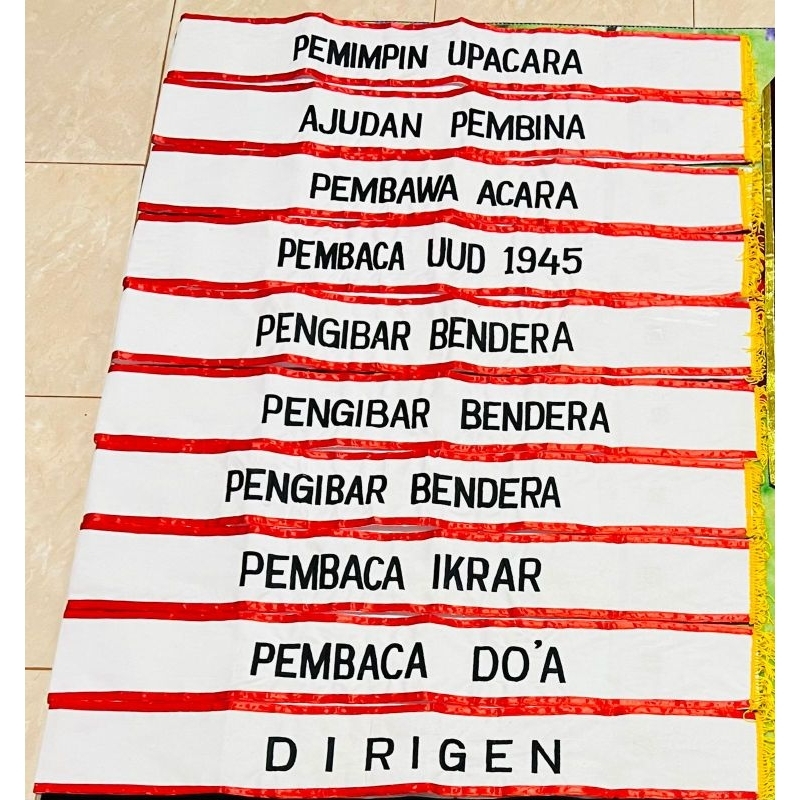 PEMIMPIN UPACARA
AJUDAN PEMBINA
PEMBAWA ACARA
PEMBACA UUD 1945
PENGIBAR BENDERA
PENGIBAR BENDERA
PENGIBAR BENDERA
PEMBACA IKRAR
PEMBACA DO'A
DIRIGEN